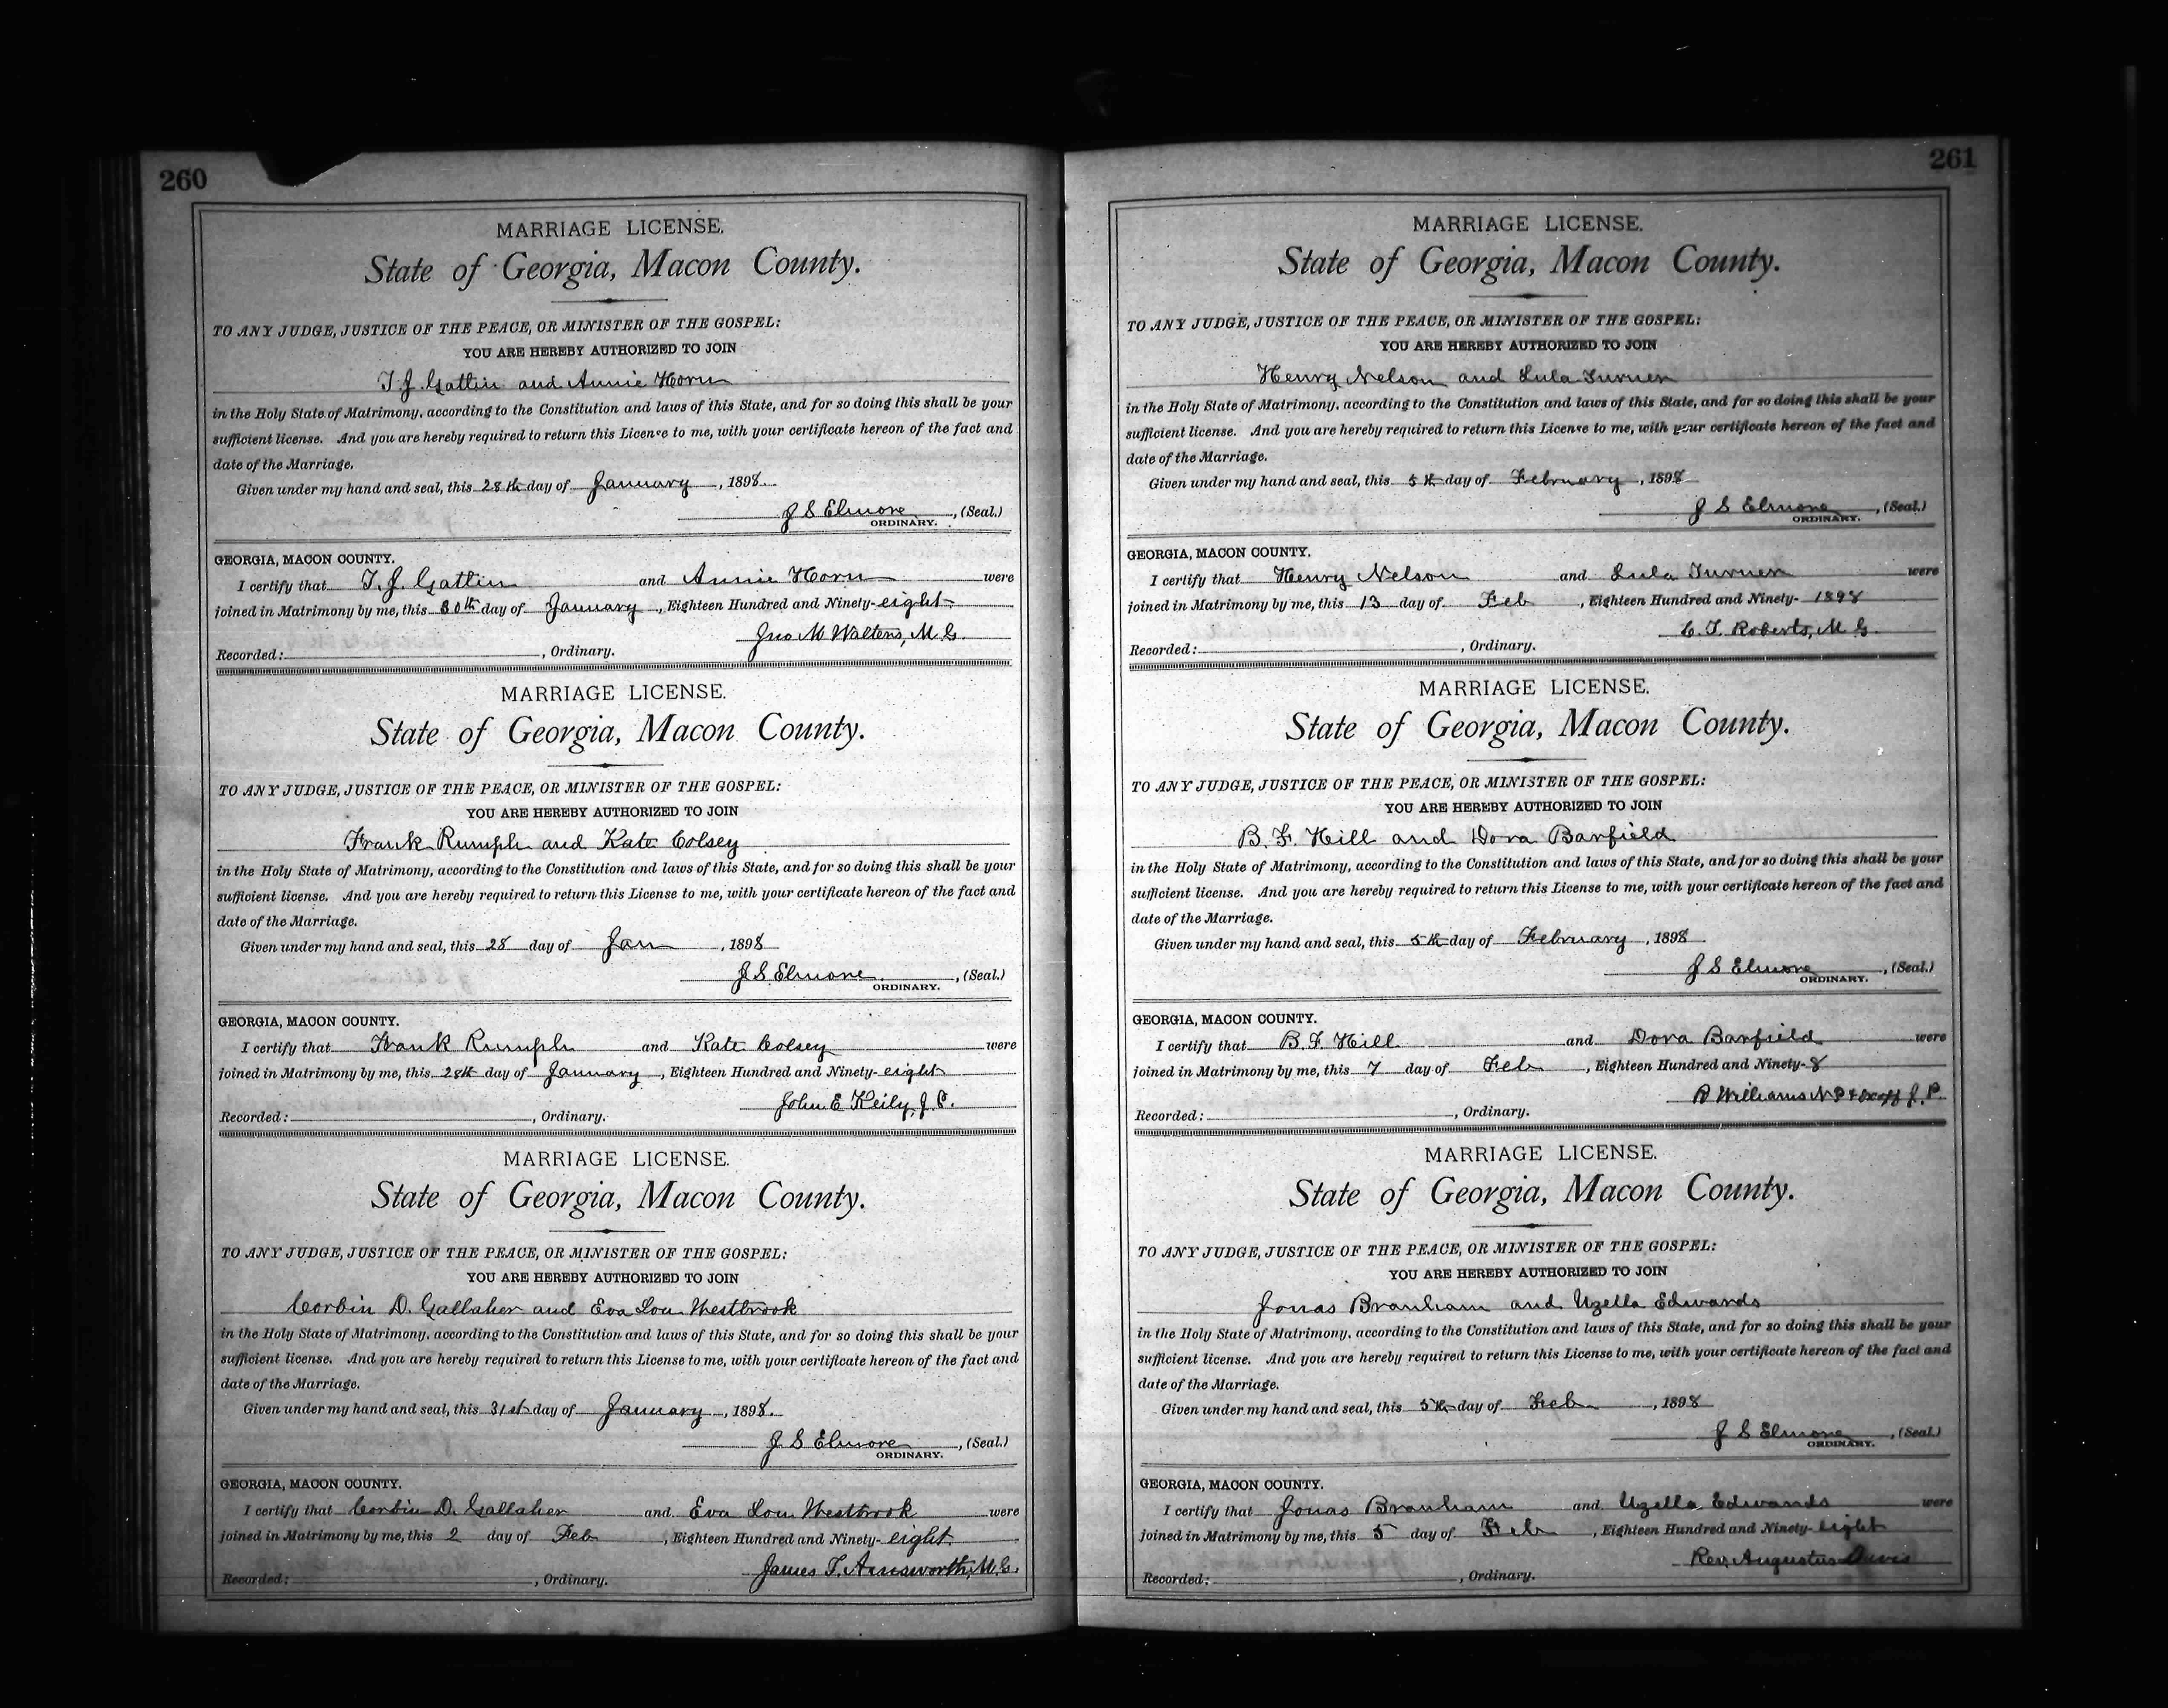 260
MARRIAGE LICENSE.
State of Georgia, Macon County.
TO ANY JUDGE, JUSTICE OF THE PEACE, OR MINISTER OF THE GOSPEL:
YOU ARE HEREBY AUTHORIZED TO JOIN
T. J. Gattin and Annie Horn
in the Holy State of Matrimony, according to the Constitution and laws of this State, and for so doing this shall be your
sufficient license. And you are hereby required to return this License to me, with your certificate hereon of the fact and
date of the Marriage.
Given under my hand and seal, this 28th day of January, 1898.
J S Elmore, (Seal.)
ORDINARY.
GEORGIA, MACON COUNTY.
I certify that T. J. Gattin and Annie Horn were
joined in Matrimony by me, this 30th day of January, Eighteen Hundred and Ninety-eight
Jno M Walters, M. G.
Recorded: , Ordinary.
MARRIAGE LICENSE.
State of Georgia, Macon County.
TO ANY JUDGE, JUSTICE OF THE PEACE, OR MINISTER OF THE GOSPEL:
YOU ARE HEREBY AUTHORIZED TO JOIN
Frank Rumph and Kate Colsey
in the Holy State of Matrimony, according to the Constitution and laws of this State, and for so doing this shall be your
sufficient license. And you are hereby required to return this License to me, with your certificate hereon of the fact and
date of the Marriage.
Given under my hand and seal, this 28 day of Jan, 1898
J S Elmore, (Seal.)
ORDINARY.
GEORGIA, MACON COUNTY.
I certify that Frank Rumph and Kate Colsey were
joined in Matrimony by me, this 28th day of January, Eighteen Hundred and Ninety-eight
John E Keily, J. P.
Recorded: , Ordinary.
MARRIAGE LICENSE.
State of Georgia, Macon County.
TO ANY JUDGE, JUSTICE OF THE PEACE, OR MINISTER OF THE GOSPEL:
YOU ARE HEREBY AUTHORIZED TO JOIN
Corbin D. Gallaher and Eva Lou Westbrook
in the Holy State of Matrimony, according to the Constitution and laws of this State, and for so doing this shall be your
sufficient license. And you are hereby required to return this License to me, with your certificate hereon of the fact and
date of the Marriage.
Given under my hand and seal, this 31st day of January, 1898.
J. S Elmore, (Seal.)
ORDINARY.
GEORGIA, MACON COUNTY.
I certify that Corbin D. Gallaher and Eva Lou Westbrook were
joined in Matrimony by me, this 2 day of Feb, Eighteen Hundred and Ninety-eight
James T. Ainsworth, M. G.
Recorded: , Ordinary.
261
MARRIAGE LICENSE.
State of Georgia, Macon County.
TO ANY JUDGE, JUSTICE OF THE PEACE, OR MINISTER OF THE GOSPEL:
YOU ARE HEREBY AUTHORIZED TO JOIN
Henry Nelson and Lula Turner
in the Holy State of Matrimony, according to the Constitution and laws of this State, and for so doing this shall be your
sufficient license. And you are hereby required to return this License to me, with your certificate hereon of the fact and
date of the Marriage.
Given under my hand and seal, this 5th day of February, 1898
J S Elmore, (Seal.)
ORDINARY.
GEORGIA, MACON COUNTY.
I certify that Henry Nelson and Lula Turner were
joined in Matrimony by me, this 13 day of Feb, Eighteen Hundred and Ninety- 1898
C. T. Roberts, M G.
Recorded: , Ordinary.
MARRIAGE LICENSE.
State of Georgia, Macon County.
TO ANY JUDGE, JUSTICE OF THE PEACE, OR MINISTER OF THE GOSPEL:
YOU ARE HEREBY AUTHORIZED TO JOIN
B. F. Hill and Dora Barfield
in the Holy State of Matrimony, according to the Constitution and laws of this State, and for so doing this shall be your
sufficient license. And you are hereby required to return this License to me, with your certificate hereon of the fact and
date of the Marriage.
Given under my hand and seal, this 5th day of February, 1898
J S Elmore, (Seal.)
ORDINARY.
GEORGIA, MACON COUNTY.
I certify that B. F. Hill and Dora Barfield were
joined in Matrimony by me, this 7 day of Feb, Eighteen Hundred and Ninety-8
Williams N P & J. P.
Recorded: , Ordinary.
MARRIAGE LICENSE.
State of Georgia, Macon County.
TO ANY JUDGE, JUSTICE OF THE PEACE, OR MINISTER OF THE GOSPEL:
YOU ARE HEREBY AUTHORIZED TO JOIN
Jonas Branham and Uzella Edwards
in the Holy State of Matrimony, according to the Constitution and laws of this State, and for so doing this shall be your
sufficient license. And you are hereby required to return this License to me, with your certificate hereon of the fact and
date of the Marriage.
Given under my hand and seal, this 5th day of Feb, 1898
J S Elmore, (Seal.)
ORDINARY.
GEORGIA, MACON COUNTY.
I certify that Jonas Branham and Uzella Edwards were
joined in Matrimony by me, this 5 day of Feb, Eighteen Hundred and Ninety-eight
Rev. Augustus Davis
Recorded: , Ordinary.